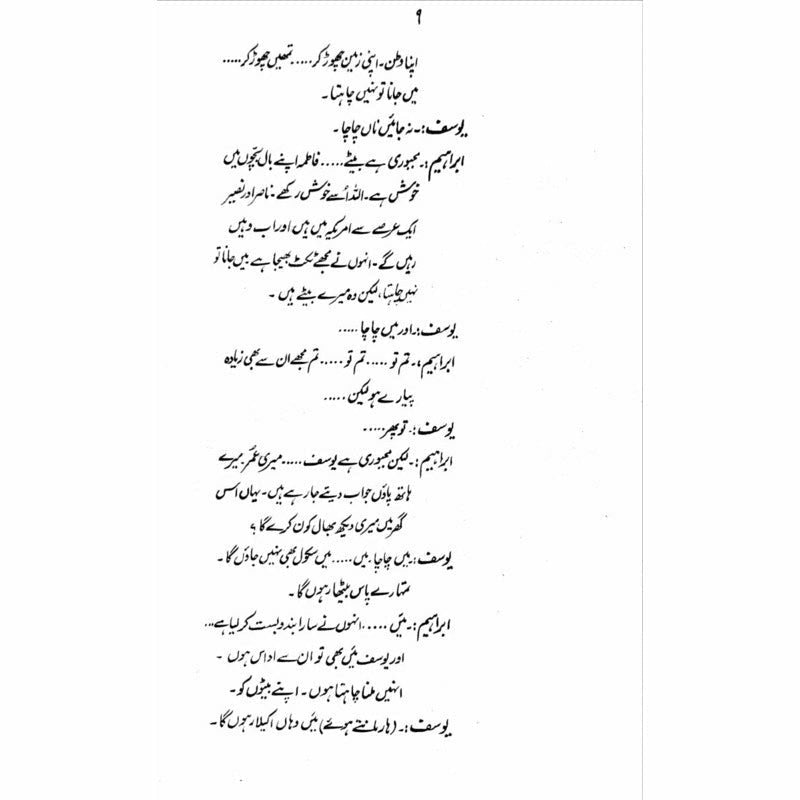 ۹
اپنا وطن۔ اپنی زمین چھوڑ کر..... تمھیں چھوڑ کر.....
میں جانا تو نہیں چاہتا۔
یوسف:۔ نہ جائیں ناں چاچا۔
ابراہیم:۔ مجبوری ہے بیٹے..... فاطمہ اپنے بال بچّوں میں
خوش ہے۔ اللہ اُسے خوش رکھے۔ ناصر اور نصیر
ایک عرصے سے امریکہ میں ہیں اور اب وہیں
رہیں گے۔ انہوں نے مجھے ٹکٹ بھیجا ہے میں جانا تو
نہیں چاہتا، لیکن وہ میرے بیٹے ہیں۔
یوسف:۔ اور میں چاچا.....
ابراہیم:۔ تم تو..... تم تو..... تم مجھے ان سے بھی زیادہ
پیارے ہو لیکن.....
یوسف:۔ تو پھر.....
ابراہیم:۔ لیکن مجبوری ہے یوسف..... میری عمر میرے
ہاتھ پاؤں جواب دیتے جا رہے ہیں۔ یہاں اس
گھر میں میری دیکھ بھال کون کرے گا؟
یوسف:۔ میں چاچا۔ میں..... میں سکول بھی نہیں جاؤں گا۔
تمہارے پاس بیٹھا رہوں گا۔
ابراہیم:۔ میں..... انہوں نے سارا بندوبست کر لیا ہے...
اور یوسف میں بھی تو ان سے اداس ہوں۔
انہیں ملنا چاہتا ہوں۔ اپنے بیٹوں کو۔
یوسف:۔ (ہار مانتے ہوئے) میں وہاں اکیلا رہوں گا۔